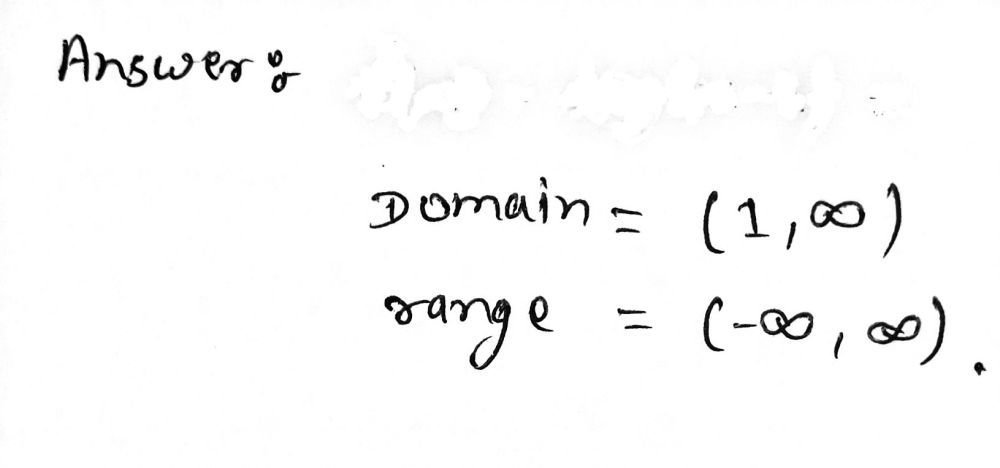 Answer:
Domain = (1, ∞)
range = (-∞, ∞).